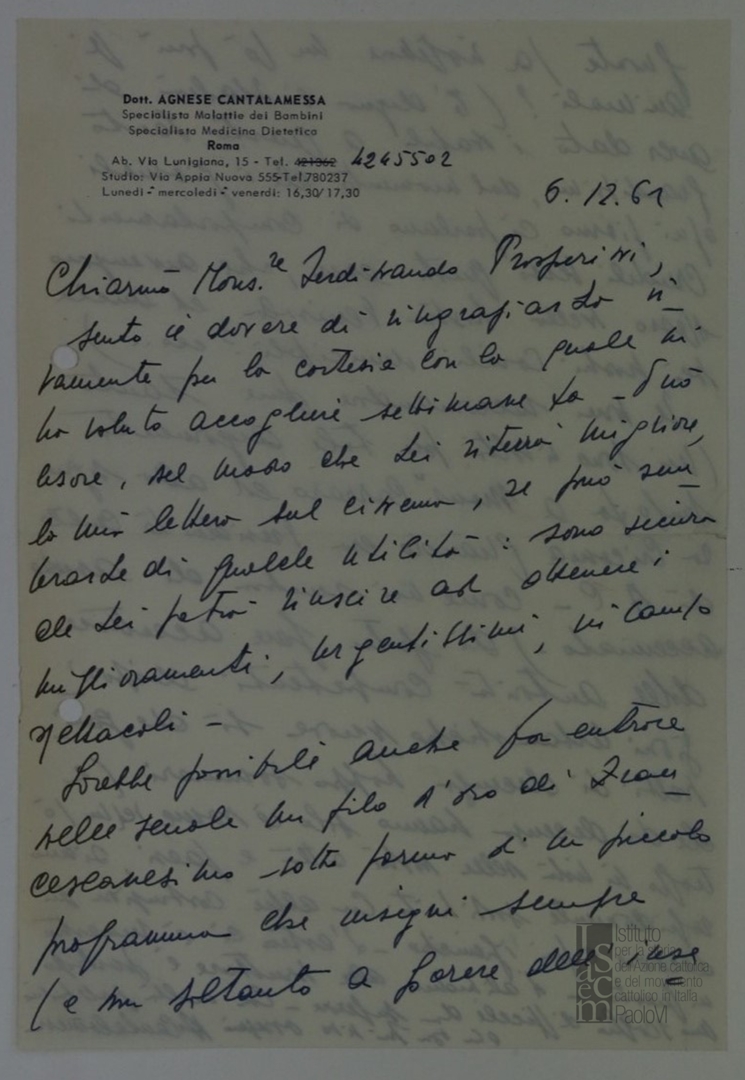 Dott. AGNESE CANTALAMESSA
Specialista Malattie dei Bambini
Specialista Medicina Dietetica
Roma
Ab. Via Lunigiana, 15 - Tel. 421362 4245502
Studio: Via Appia Nuova 555-Tel.780237
Lunedì - mercoledì - venerdì: 16,30/17,30
6.12.61
Chiarmo Mons.re Ferdinando Prosperini,
sento il dovere di ringraziarLa vi
vamente per la cortesia con la quale mi
ha voluto accogliere settimane fa - Può
usare, nel modo che Lei riterrà migliore,
la mia lettera sul cinema, se può sem
brarLe di qualche utilità: sono sicura
che Lei potrà riuscire ad ottenere i
miglioramenti, urgentissimi, in campo
spettacoli -
Sarebbe possibile anche far entrare
nelle scuole un filo d'oro di Fran
cescanesimo sotto forma di un piccolo
programma che insegni sempre
(e non soltanto a parere dell'inse
Istituto
per la storia
dell'Azione cattolica
e del movimento
cattolico in Italia
PaoloVI